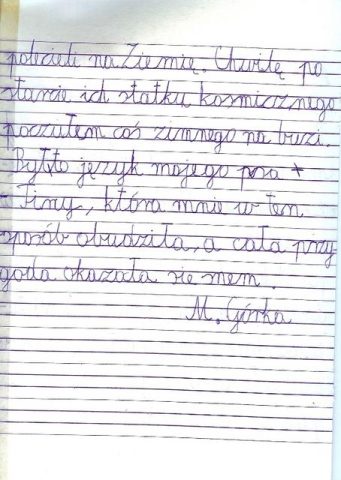 polecieli na Ziemię. Chwilę po
starcie ich statku kosmicznego
poczułem coś zimnego na buzi.
Był to język mojego psa +
- Finy, która mnie w ten
sposób obudziła, a cała przy
goda okazała sie snem.
M. Górka